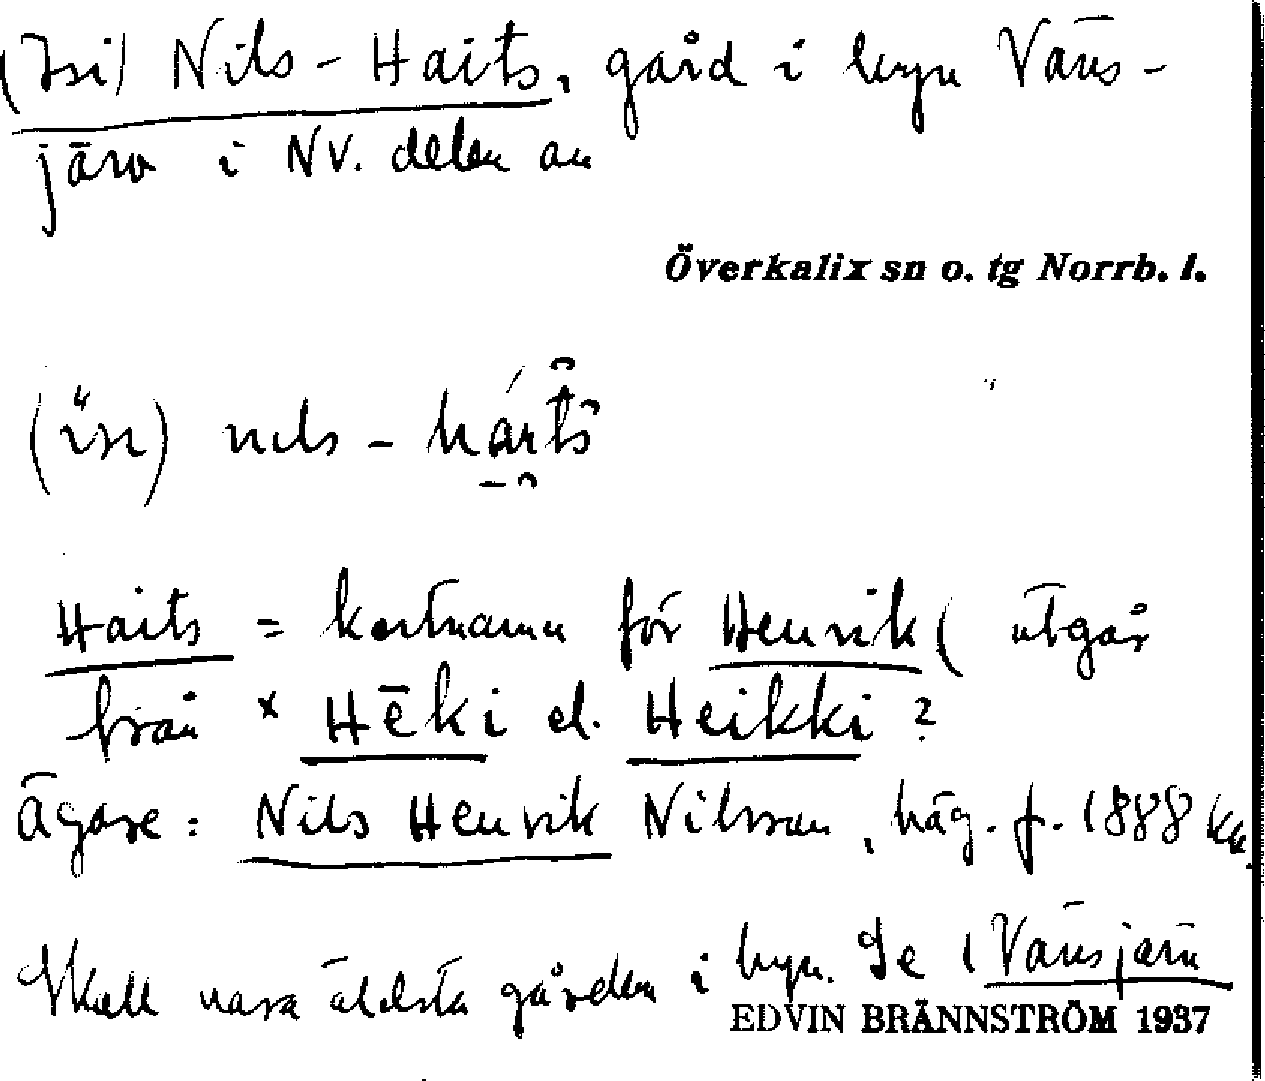 (Isi) Nils-Haits, gård i byn Väns-
järv i NV. delen av
Överkalix sn o. tg Norrb. l.
nils-
Haits = kortnamn för Henrik (utgår
från * Hēki el. Heikki?
Ägare: Nils Henrik Nilsson, häg. f. 1888
Skall vara äldsta gården i byn. Se Vänsjärv
EDVIN BRÄNNSTRÖM 1937